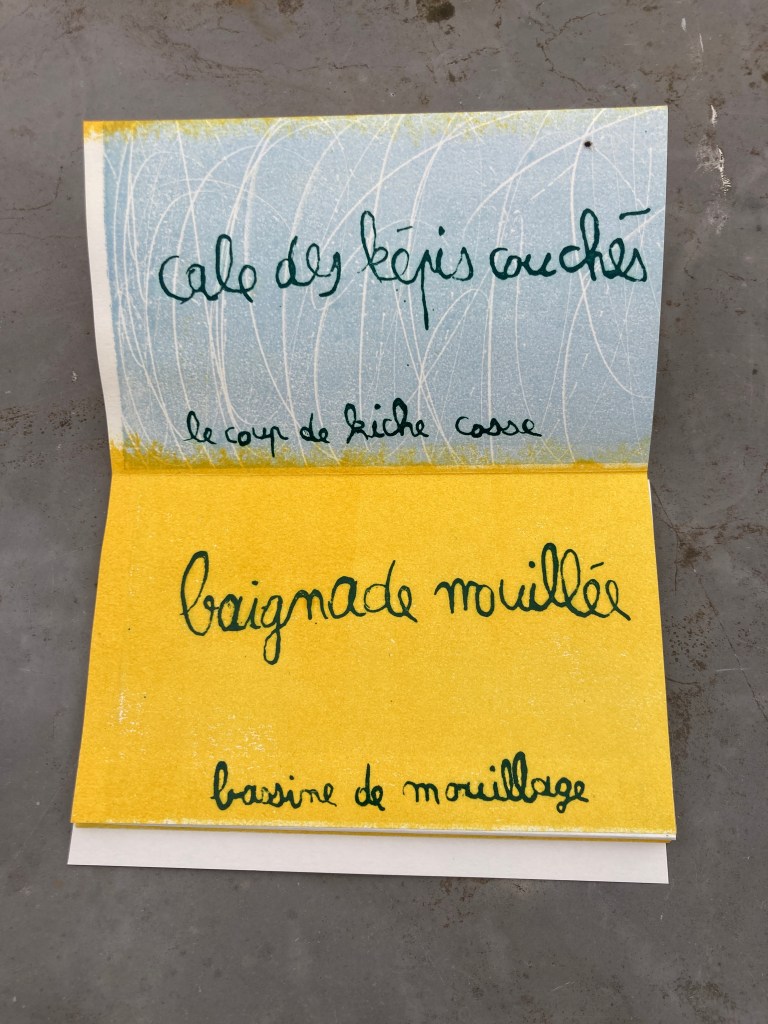 cale des képis couchés
le coup de kiche casse
baignade mouillée
bassine de mouillage